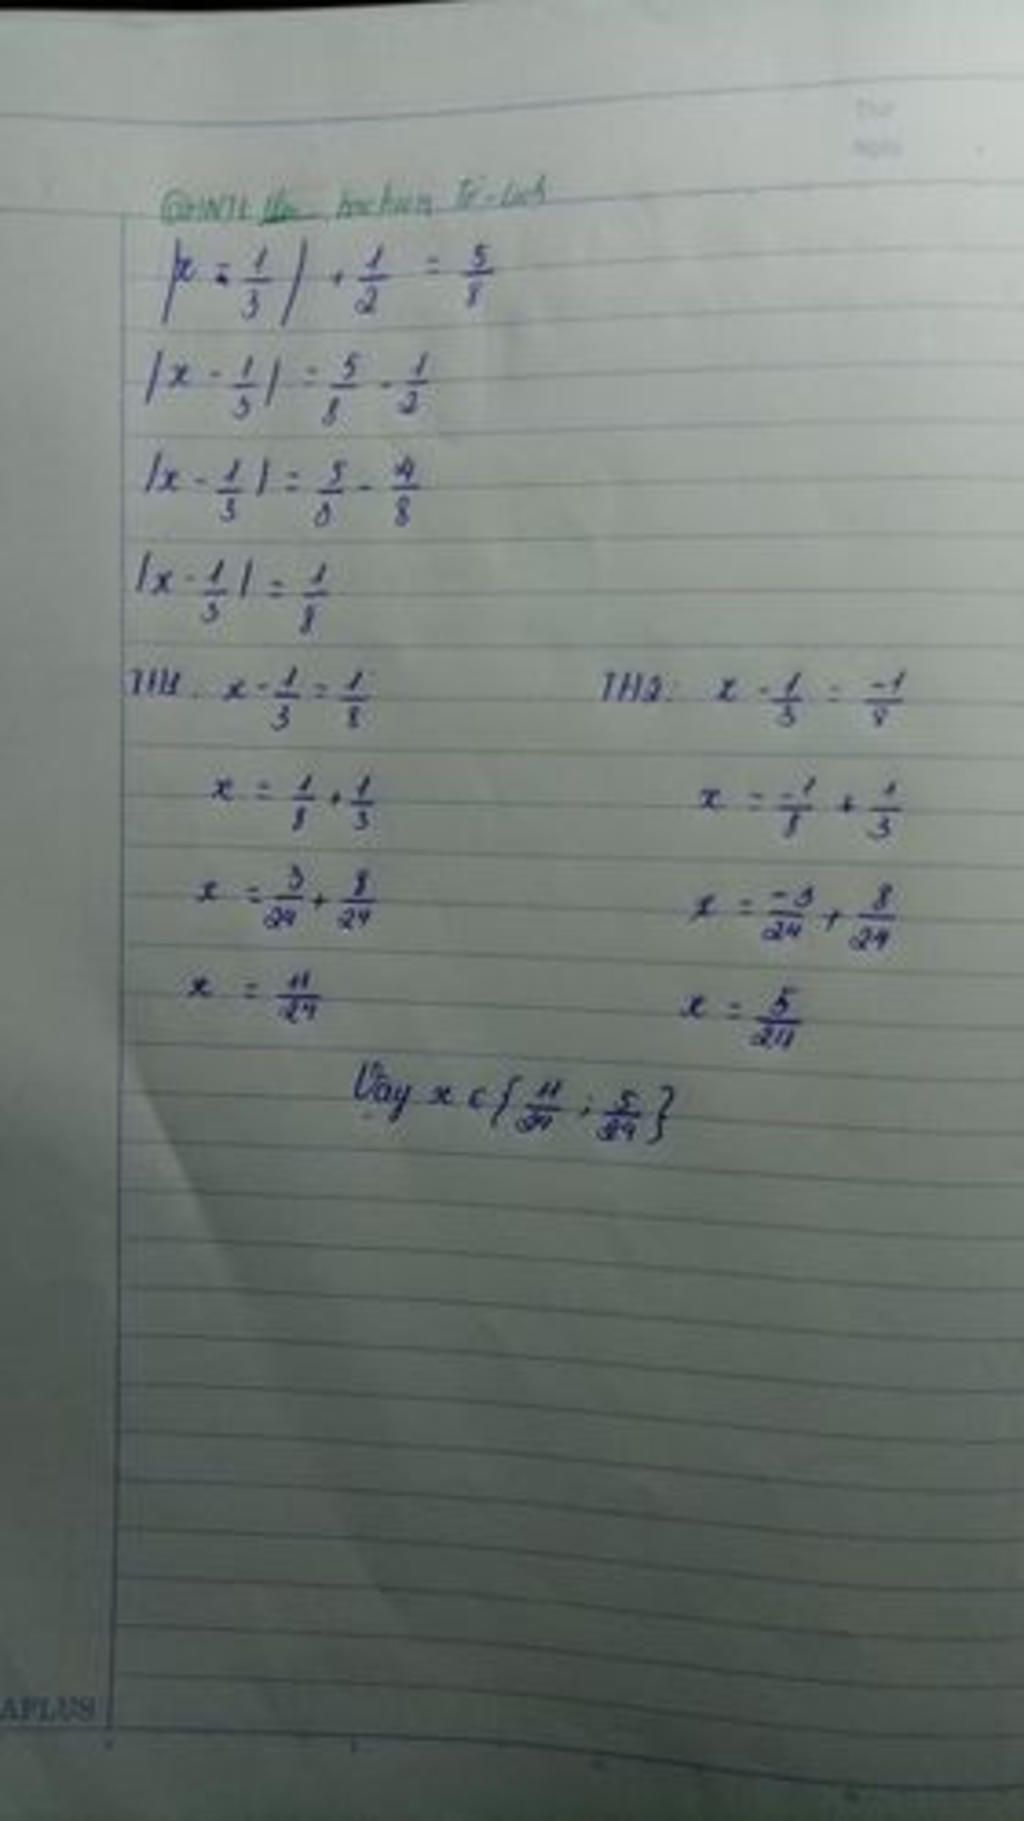 |x - 1/3| + 1/2 = 5/8
|x - 1/3| = 5/8 - 1/2
|x - 1/3| = 5/8 - 4/8
|x - 1/3| = 1/8
TH1: x - 1/3 = 1/8
x = 1/8 + 1/3
x = 3/24 + 8/24
x = 11/24
TH2: x - 1/3 = -1/8
x = -1/8 + 1/3
x = -3/24 + 8/24
x = 5/24
Vậy x ∈ {11/24 ; 5/24}
APLUS